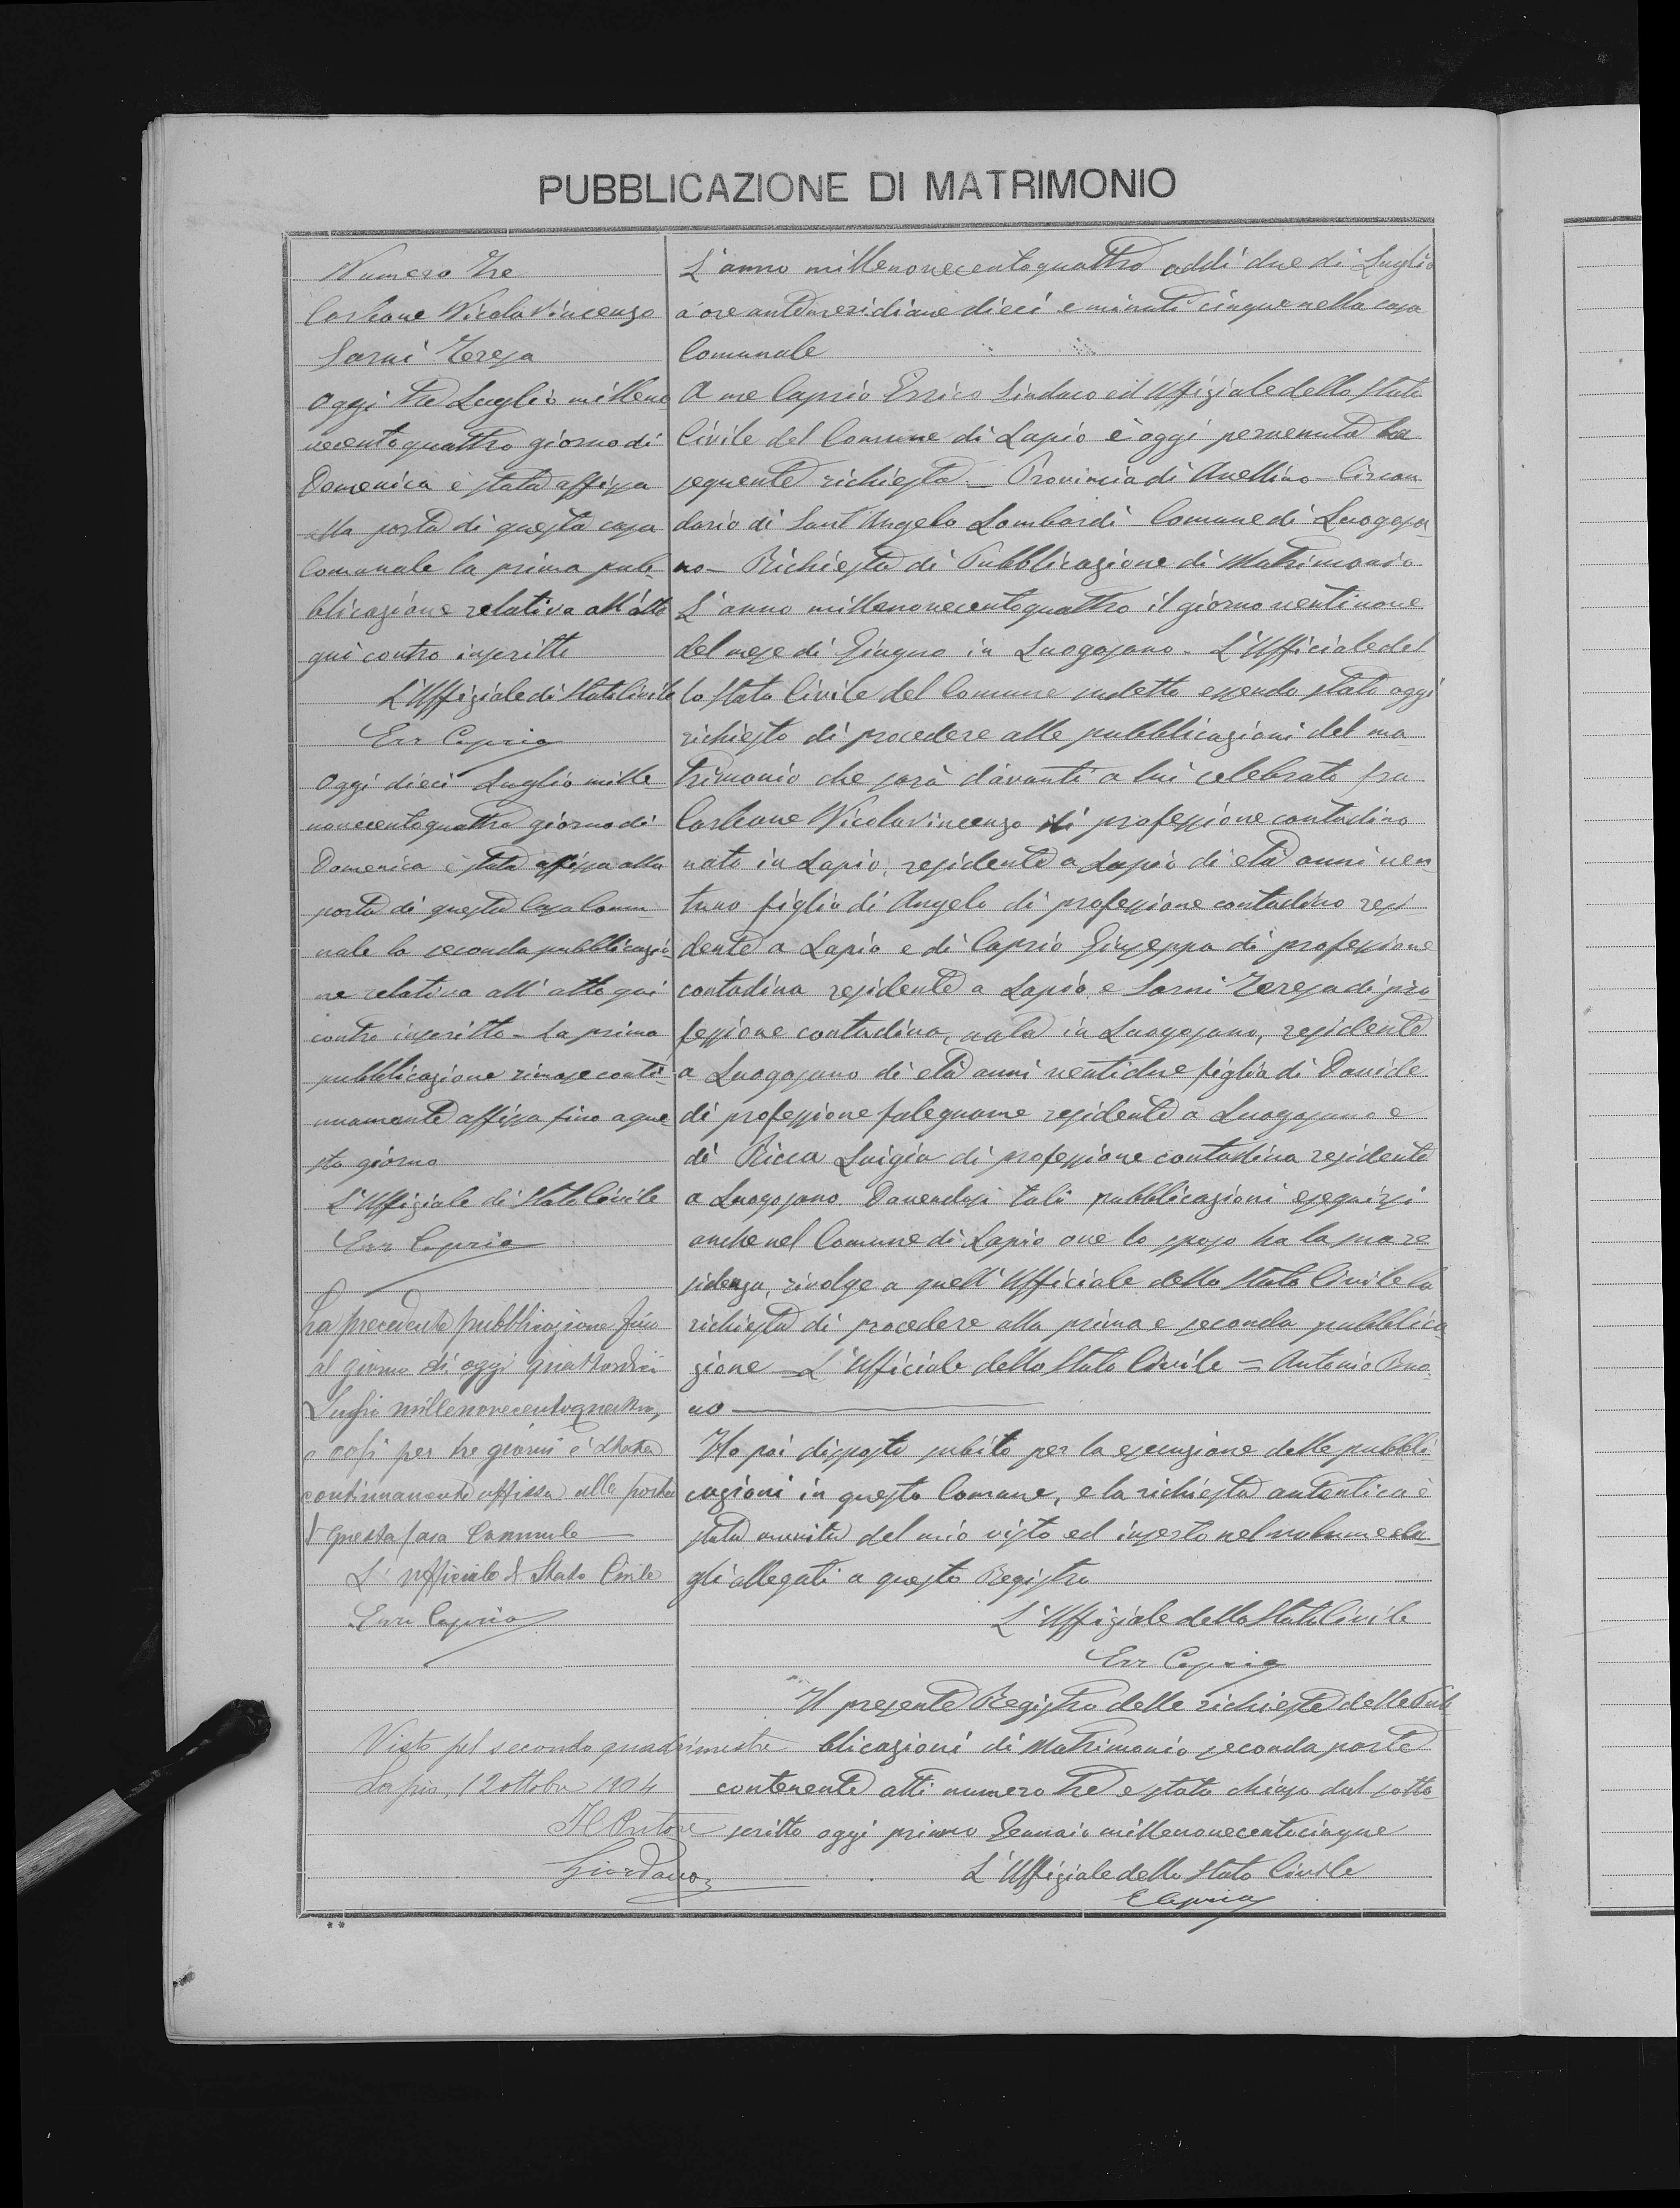 PUBBLICAZIONE DI MATRIMONIO
Numero Tre
Carbone Nicola Vincenzo
Sarni Teresa
Oggi tre Luglio milleno
vecentoquattro giorno di
Domenica è stata affissa
alla porta di questa casa
Comunale la prima pub-
blicazione relativa all'atto
qui contro inscritto
L'Uffiziale di Stato Civile
Err Caprio
Oggi dieci Luglio mille
novecentoquattro giorno di
Domenica è stata affissa alla
porta di questa Casa Comu-
nale la seconda pubblicazio-
ne relativa all'atto qui
contro inscritto - La prima
pubblicazione rimase conti-
nuamente affissa fino a que
sto giorno
L'Uffiziale di Stato Civile
Err Caprio
La precedente pubblicazione fino
al giorno di oggi quattordici
Luglio millenovecentoquattro,
e così per tre giorni è stata
continuamente affissa alla porta
di questa Casa Comunale
L'Ufficiale di Stato Civile
Err Caprio
Visto pel secondo quadrimestre
Lapio, 12 ottobre 1904
Il Pretore
Giordano
L'anno millenovecentoquattro addì due di Luglio
a ore antimeridiane dieci e minuti cinque nella casa
Comunale
A me Caprio Errico Sindaco ed Uffiziale dello Stato
Civile del Comune di Lapio è oggi pervenuta la
seguente richiesta - Provincia di Avellino - Circon-
dario di Sant'Angelo Lombardi Comune di Luogosa-
no - Richiesta di Pubblicazione di Matrimonio
L'anno millenovecentoquattro il giorno ventinove
del mese di Giugno in Luogosano - L'Ufficiale del
lo Stato Civile del Comune sudetto essendo stato oggi
richiesto di procedere alle pubblicazioni del ma
trimonio che sarà davanti a lui celebrato fra
Carbone Nicolavincenzo di professione contadino
nato in Lapio, residente a Lapio di età anni ven-
tuno figlio di Angelo di professione contadino resi
dente a Lapio e di Caprio Giuseppa di professione
contadina residente a Lapio e Sarni Teresa di pro-
fessione contadina, nata in Luogosano, residente
a Luogosano di età anni ventidue figlia di Davide
di professione falegname residente a Luogosano e
di Ricca Luigia di professione contadina residente
a Luogosano. Davendosi tali pubblicazioni eseguirsi
anche nel Comune di Lapio ove lo sposo ha la sua re-
sidenza, rivolge a quell'Ufficiale dello Stato Civile la
richiesta di procedere alla prima e seconda pubblica
zione - L'Ufficiale dello Stato Civile = Antonio Buo-
no
Ho poi disposto subito per la esecuzione delle pubbli
cazioni in questo Comune, e la richiesta autentica è
stata munita del mio visto ed inserta nel volume de-
gli allegati a questo Registro
L'Uffiziale dello Stato Civile
Err Caprio
Il presente Registro delle richieste delle Pub
blicazioni di Matrimonio seconda parte
contenente atti numero tre è stato chiuso dal sotto-
scritto oggi primo Gennaio millenovecentocinque
L'Uffiziale dello Stato Civile
E Caprio
**